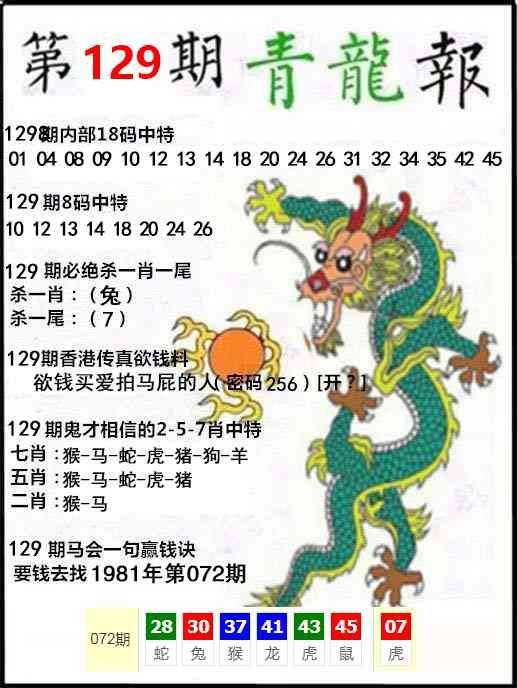 第129期 青龍報
129期内部18码中特
01 04 08 09 10 12 13 14 18 20 24 26 31 32 34 35 42 45
129期8码中特
10 12 13 14 18 20 24 26
129 期必绝杀一肖一尾
杀一肖：（兔）
杀一尾：（7）
129期香港传真欲钱料
欲钱买爱拍马屁的人（密码256）[开？]
129期鬼才相信的2-5-7肖中特
七肖：猴-马-蛇-虎-猪-狗-羊
五肖：猴-马-蛇-虎-猪
二肖：猴-马
129 期马会一句赢钱诀
要钱去找1981年第072期
072期 28 30 37 41 43 45 07
蛇 兔 猴 龙 虎 鼠 虎